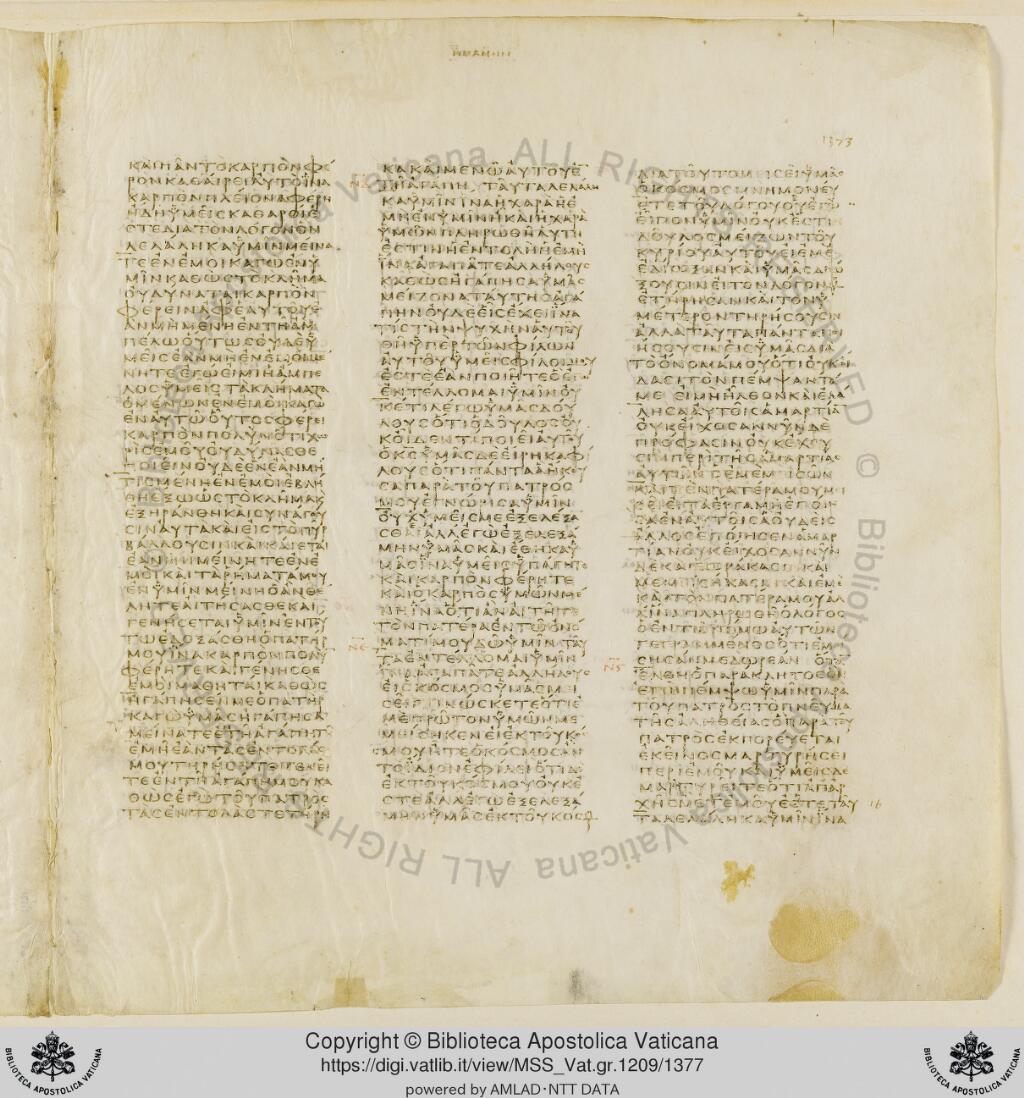 ΙΩΑΝΗΝ
1373
ΚΑΙΠΑΝΤΟΚΑΡΠΟΝΦΕ
ΡΟΝΚΑΘΑΙΡΕΙΑΥΤΟΙΝΑ
ΚΑΡΠΟΝΠΛΕΙΟΝΑΦΕΡΗ
ΗΔΗΥΜΕΙΣΚΑΘΑΡΟΙΕ
ΣΤΕΔΙΑΤΟΝΛΟΓΟΝΟΝ
ΛΕΛΑΛΗΚΑΥΜΙΝΜΕΙΝΑ
ΤΕΕΝΕΜΟΙΚΑΓΩΕΝΥ
ΜΙΝΚΑΘΩΣΤΟΚΛΗΜΑ
ΟΥΔΥΝΑΤΑΙΚΑΡΠΟΝ
ΦΕΡΕΙΝΑΦΕΑΥΤΟΥΕ
ΑΝΜΗΜΕΝΗΕΝΤΗΑΜ
ΠΕΛΩΟΥΤΩΣΟΥΔΕΥ
ΜΕΙΣΕΑΝΜΗΕΝΕΜΟΙΜΕ
ΝΗΤΕΕΓΩΕΙΜΙΗΑΜΠΕ
ΛΟΣΥΜΕΙΣΤΑΚΛΗΜΑΤΑ
ΟΜΕΝΩΝΕΝΕΜΟΙΚΑΓΩ
ΕΝΑΥΤΩΟΥΤΟΣΦΕΡΕΙ
ΚΑΡΠΟΝΠΟΛΥΝΟΤΙΧΩ
ΡΙΣΕΜΟΥΟΥΔΥΝΑΣΘΕ
ΠΟΙΕΙΝΟΥΔΕΕΝΕΑΝΜΗ
ΤΙΣΜΕΝΗΕΝΕΜΟΙΕΒΛΗ
ΘΗΕΞΩΩΣΤΟΚΛΗΜΑΚ
ΕΞΗΡΑΝΘΗΚΑΙΣΥΝΑΓΟΥ
ΣΙΝΑΥΤΑΚΑΙΕΙΣΤΟΠΥΡ
ΒΑΛΛΟΥΣΙΝΚΑΙΚΑΙΕΤΑΙ
ΕΑΝΜΕΙΝΗΤΕΕΝΕ
ΜΟΙΚΑΙΤΑΡΗΜΑΤΑΜΟΥ
ΕΝΥΜΙΝΜΕΙΝΗΟΑΝΘΕ
ΛΗΤΕΑΙΤΗΣΑΣΘΕΚΑΙ
ΓΕΝΗΣΕΤΑΙΥΜΙΝΕΝΤΟΥ
ΤΩΕΔΟΞΑΣΘΗΟΠΑΤΗΡ
ΜΟΥΙΝΑΚΑΡΠΟΝΠΟΛΥ
ΦΕΡΗΤΕΚΑΙΓΕΝΗΣΘΕ
ΕΜΟΙΜΑΘΗΤΑΙΚΑΘΩΣ
ΗΓΑΠΗΣΕΝΜΕΟΠΑΤΗΡ
ΚΑΓΩΥΜΑΣΗΓΑΠΗΣΑ
ΜΕΙΝΑΤΕΕΝΤΗΑΓΑΠΗΤΗ
ΕΜΗΕΑΝΤΑΣΕΝΤΟΛΑΣ
ΜΟΥΤΗΡΗΣΗΤΕΜΕΝΕΙ
ΤΕΕΝΤΗΑΓΑΠΗΜΟΥΚΑ
ΘΩΣΕΓΩΤΟΥΠΑΤΡΟΣ
ΤΑΣΕΝΤΟΛΑΣΤΕΤΗΡΗ
ΚΑΚΑΙΜΕΝΩΑΥΤΟΥΕ
ΤΗΑΓΑΠΗ ΤΑΥΤΑΛΕΛΑΛΗ
ΚΑΥΜΙΝΙΝΑΗΧΑΡΑΗΕ
ΜΗΕΝΥΜΙΝΗΚΑΙΗΧΑΡΑ
ΥΜΩΝΠΛΗΡΩΘΗΑΥΤΗ
ΕΣΤΙΝΗΕΝΤΟΛΗΗΕΜΗ
ΙΝΑΑΓΑΠΑΤΕΑΛΛΗΛΟΥΣ
ΚΑΘΩΣΗΓΑΠΗΣΑΥΜΑΣ
ΜΕΙΖΟΝΑΤΑΥΤΗΣΑΓΑ
ΠΗΝΟΥΔΕΙΣΕΧΕΙΙΝΑ
ΤΙΣΤΗΝΨΥΧΗΝΑΥΤΟΥ
ΘΗΥΠΕΡΤΩΝΦΙΛΩΝ
ΑΥΤΟΥΥΜΕΙΣΦΙΛΟΙΜΟΥ
ΕΣΤΕΕΑΝΠΟΙΗΤΕΟΕΓΩ
ΕΝΤΕΛΛΟΜΑΙΥΜΙΝΟΥ
ΚΕΤΙΛΕΓΩΥΜΑΣΔΟΥ
ΛΟΥΣΟΤΙΟΔΟΥΛΟΣΟΥ
ΚΟΙΔΕΝΤΙΠΟΙΕΙΑΥΤΟΥ
ΟΚΣΥΜΑΣΔΕΕΙΡΗΚΑΦΙ
ΛΟΥΣΟΤΙΠΑΝΤΑΑΗΚΟΥ
ΣΑΠΑΡΑΤΟΥΠΑΤΡΟΣ
ΜΟΥΕΓΝΩΡΙΣΑΥΜΙΝ
ΟΥΧΥΜΕΙΣΜΕΕΞΕΛΕΞΑ
ΣΘΕΑΛΛΕΓΩΕΞΕΛΕΞΑ
ΜΗΝΥΜΑΣΚΑΙΕΘΗΚΑΥ
ΜΑΣΙΝΑΥΜΕΙΣΥΠΑΓΗΤΕ
ΚΑΙΚΑΡΠΟΝΦΕΡΗΤΕ
ΚΑΙΟΚΑΡΠΟΣΥΜΩΝΜΕ
ΝΗΙΝΑΟΤΙΑΝΑΙΤΗΤΕ
ΤΟΝΠΑΤΕΡΑΕΝΤΩΟΝΟ
ΜΑΤΙΜΟΥΔΩΥΜΙΝΤΑΥ
ΤΑΕΝΤΕΛΛΟΜΑΙΥΜΙΝ
ΙΝΑΑΓΑΠΑΤΕΑΛΛΗΛΟΥΣ
ΕΙΟΚΟΣΜΟΣΥΜΑΣΜΕΙ
ΣΕΙΓΕΙΝΩΣΚΕΤΕΟΤΙΕ
ΜΕΠΡΩΤΟΝΥΜΩΝΜΕ
ΜΕΙΣΗΚΕΝΕΙΕΚΤΟΥΚΟ
ΣΜΟΥΗΤΕΟΚΟΣΜΟΣΑΝ
ΤΟΙΔΙΟΝΕΦΙΛΕΙΟΤΙΔΕ
ΕΚΤΟΥΚΟΣΜΟΥΟΥΚΕ
ΣΤΕΑΛΛΕΓΩΕΞΕΛΕΞΑ
ΜΗΝΥΜΑΣΕΚΤΟΥΚΟΣΜΟΥ
ΔΙΑΤΟΥΤΟΜΕΙΣΕΙΥΜΑΣ
ΟΚΟΣΜΟΣΜΝΗΜΟΝΕΥ
ΕΤΕΤΟΥΛΟΓΟΥΟΥΕΓΩ
ΕΙΠΟΝΥΜΙΝΟΥΚΕΣΤΙ
ΔΟΥΛΟΣΜΕΙΖΩΝΤΟΥ
ΚΥΡΙΟΥΑΥΤΟΥΕΙΕΜΕ
ΕΔΙΩΞΑΝΚΑΙΥΜΑΣΔΙΩ
ΞΟΥΣΙΝΕΙΤΟΝΛΟΓΟΝΜΟΥ
ΕΤΗΡΗΣΑΝΚΑΙΤΟΝΥ
ΜΕΤΕΡΟΝΤΗΡΗΣΟΥΣΙΝ
ΑΛΛΑΤΑΥΤΑΠΑΝΤΑΠΟΙ
ΗΣΟΥΣΙΝΕΙΣΥΜΑΣΔΙΑ
ΤΟΟΝΟΜΑΜΟΥΟΤΙΟΥΚΟΙ
ΔΑΣΙΤΟΝΠΕΜΨΑΝΤΑ
ΜΕ ΕΙΜΗΗΛΘΟΝΚΑΙΕΛΑ
ΛΗΣΑΑΥΤΟΙΣΑΜΑΡΤΙΑ
ΟΥΚΕΙΧΟΣΑΝΝΥΝΔΕ
ΠΡΟΦΑΣΙΝΟΥΚΕΧΟΥ
ΣΙΝΠΕΡΙΤΗΣΑΜΑΡΤΙΑΣ
ΑΥΤΩΝΟΕΜΕΜΕΙΣΩΝ
ΚΑΙΤΟΝΠΑΤΕΡΑΜΟΥΜΙ
ΣΕΙΕΙΤΑΕΡΓΑΜΗΕΠΟΙΗ
ΣΑΕΝΑΥΤΟΙΣΑΟΥΔΕΙΣ
ΑΛΛΟΣΕΠΟΙΗΣΕΝΑΜΑΡ
ΤΙΑΝΟΥΚΕΙΧΟΣΑΝΝΥΝ
ΔΕΚΑΙΕΟΡΑΚΑΣΙΝΚΑΙ
ΜΕΜΙΣΗΚΑΣΙΝΚΑΙΕΜΕ
ΚΑΙΤΟΝΠΑΤΕΡΑΜΟΥΑΛΛ
ΙΝΑΠΛΗΡΩΘΗΟΛΟΓΟΣ
ΟΕΝΤΩΝΟΜΩΑΥΤΩΝ
ΓΕΓΡΑΜΜΕΝΟΣΟΤΙΕΜΙ
ΣΗΣΑΝΜΕΔΩΡΕΑΝ ΟΤΑ
ΕΛΘΗΟΠΑΡΑΚΛΗΤΟΣΟΝ
ΕΓΩΠΕΜΨΩΥΜΙΝΠΑΡΑ
ΤΟΥΠΑΤΡΟΣΤΟΠΝΕΥΜΑ
ΤΗΣΑΛΗΘΕΙΑΣΟΠΑΡΑΤΟΥ
ΠΑΤΡΟΣΕΚΠΟΡΕΥΕΤΑΙ
ΕΚΕΙΝΟΣΜΑΡΤΥΡΗΣΕΙ
ΠΕΡΙΕΜΟΥΚΑΙΥΜΕΙΣΔΕ
ΜΑΡΤΥΡΕΙΤΕΟΤΙΑΠΑΡ
ΧΗΣΜΕΤΕΜΟΥΕΣΤΕΤΑΥ
16
ΤΑΛΕΛΑΛΗΚΑΥΜΙΝΙΝΑ
Copyright © Biblioteca Apostolica Vaticana
https://digi.vatlib.it/view/MSS_Vat.gr.1209/1377
powered by AMLAD·NTT DATA